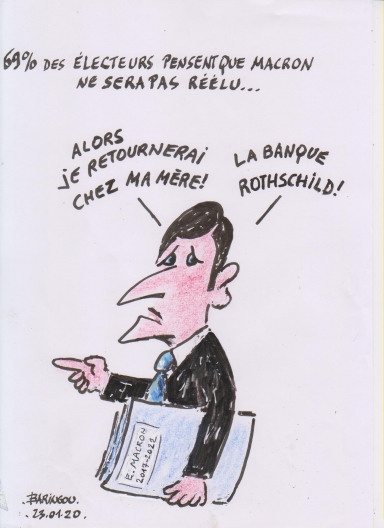 69% DES ÉLECTEURS PENSENT QUE MACRON
NE SERA PAS RÉÉLU...
ALORS
JE RETOURNERAI
CHEZ MA MÈRE!
LA BANQUE
ROTHSCHILD!
E. MACRON
2017-2022
BARINGOU
23.01.20.